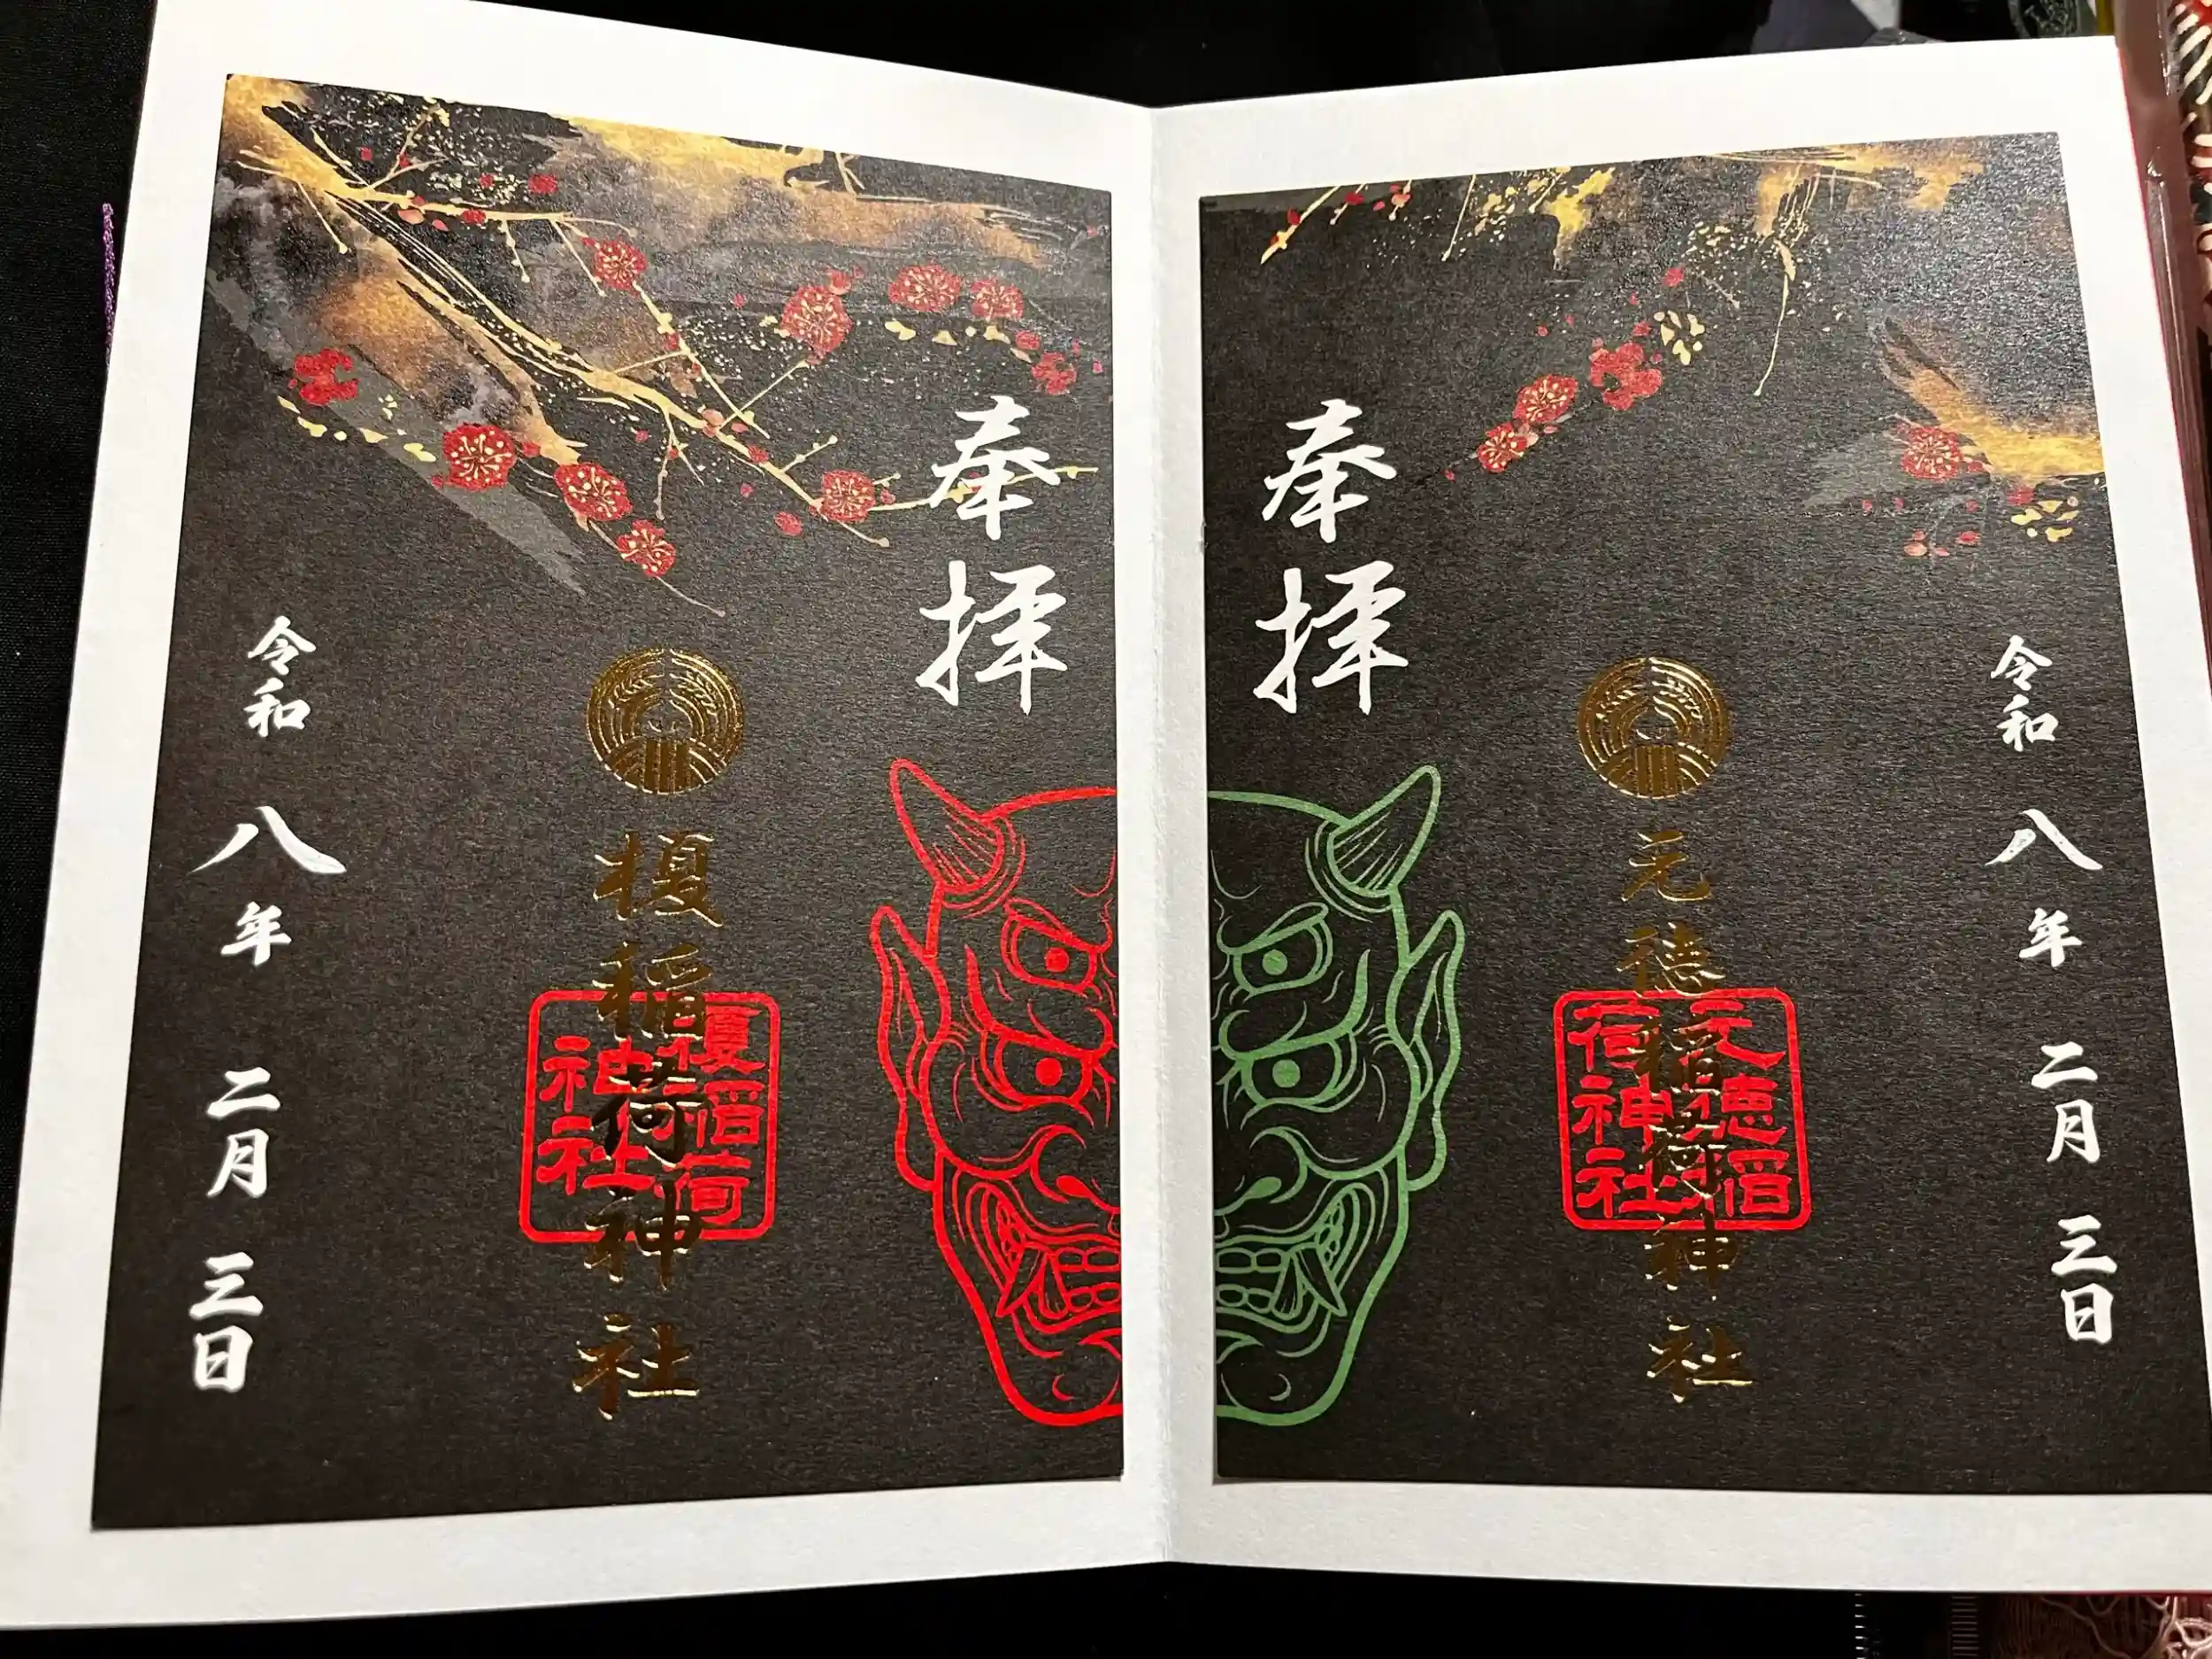 奉拝
榎稲荷神社
榎稲荷
神社
令和 八年 二月 三日
奉拝
元徳稲荷神社
元徳稲
荷神社
令和 八年 二月 三日